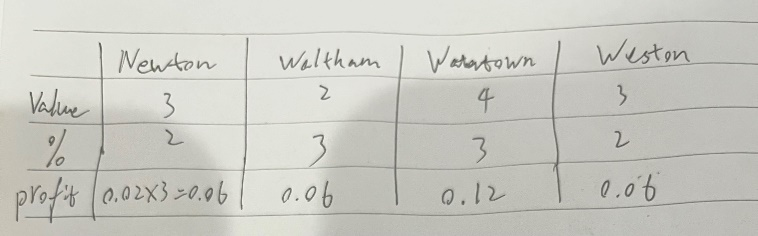 Newton Waltham Watertown Weston
Value 3 2 4 3
% 2 3 3 2
profit 0.02x3=0.06 0.06 0.12 0.06